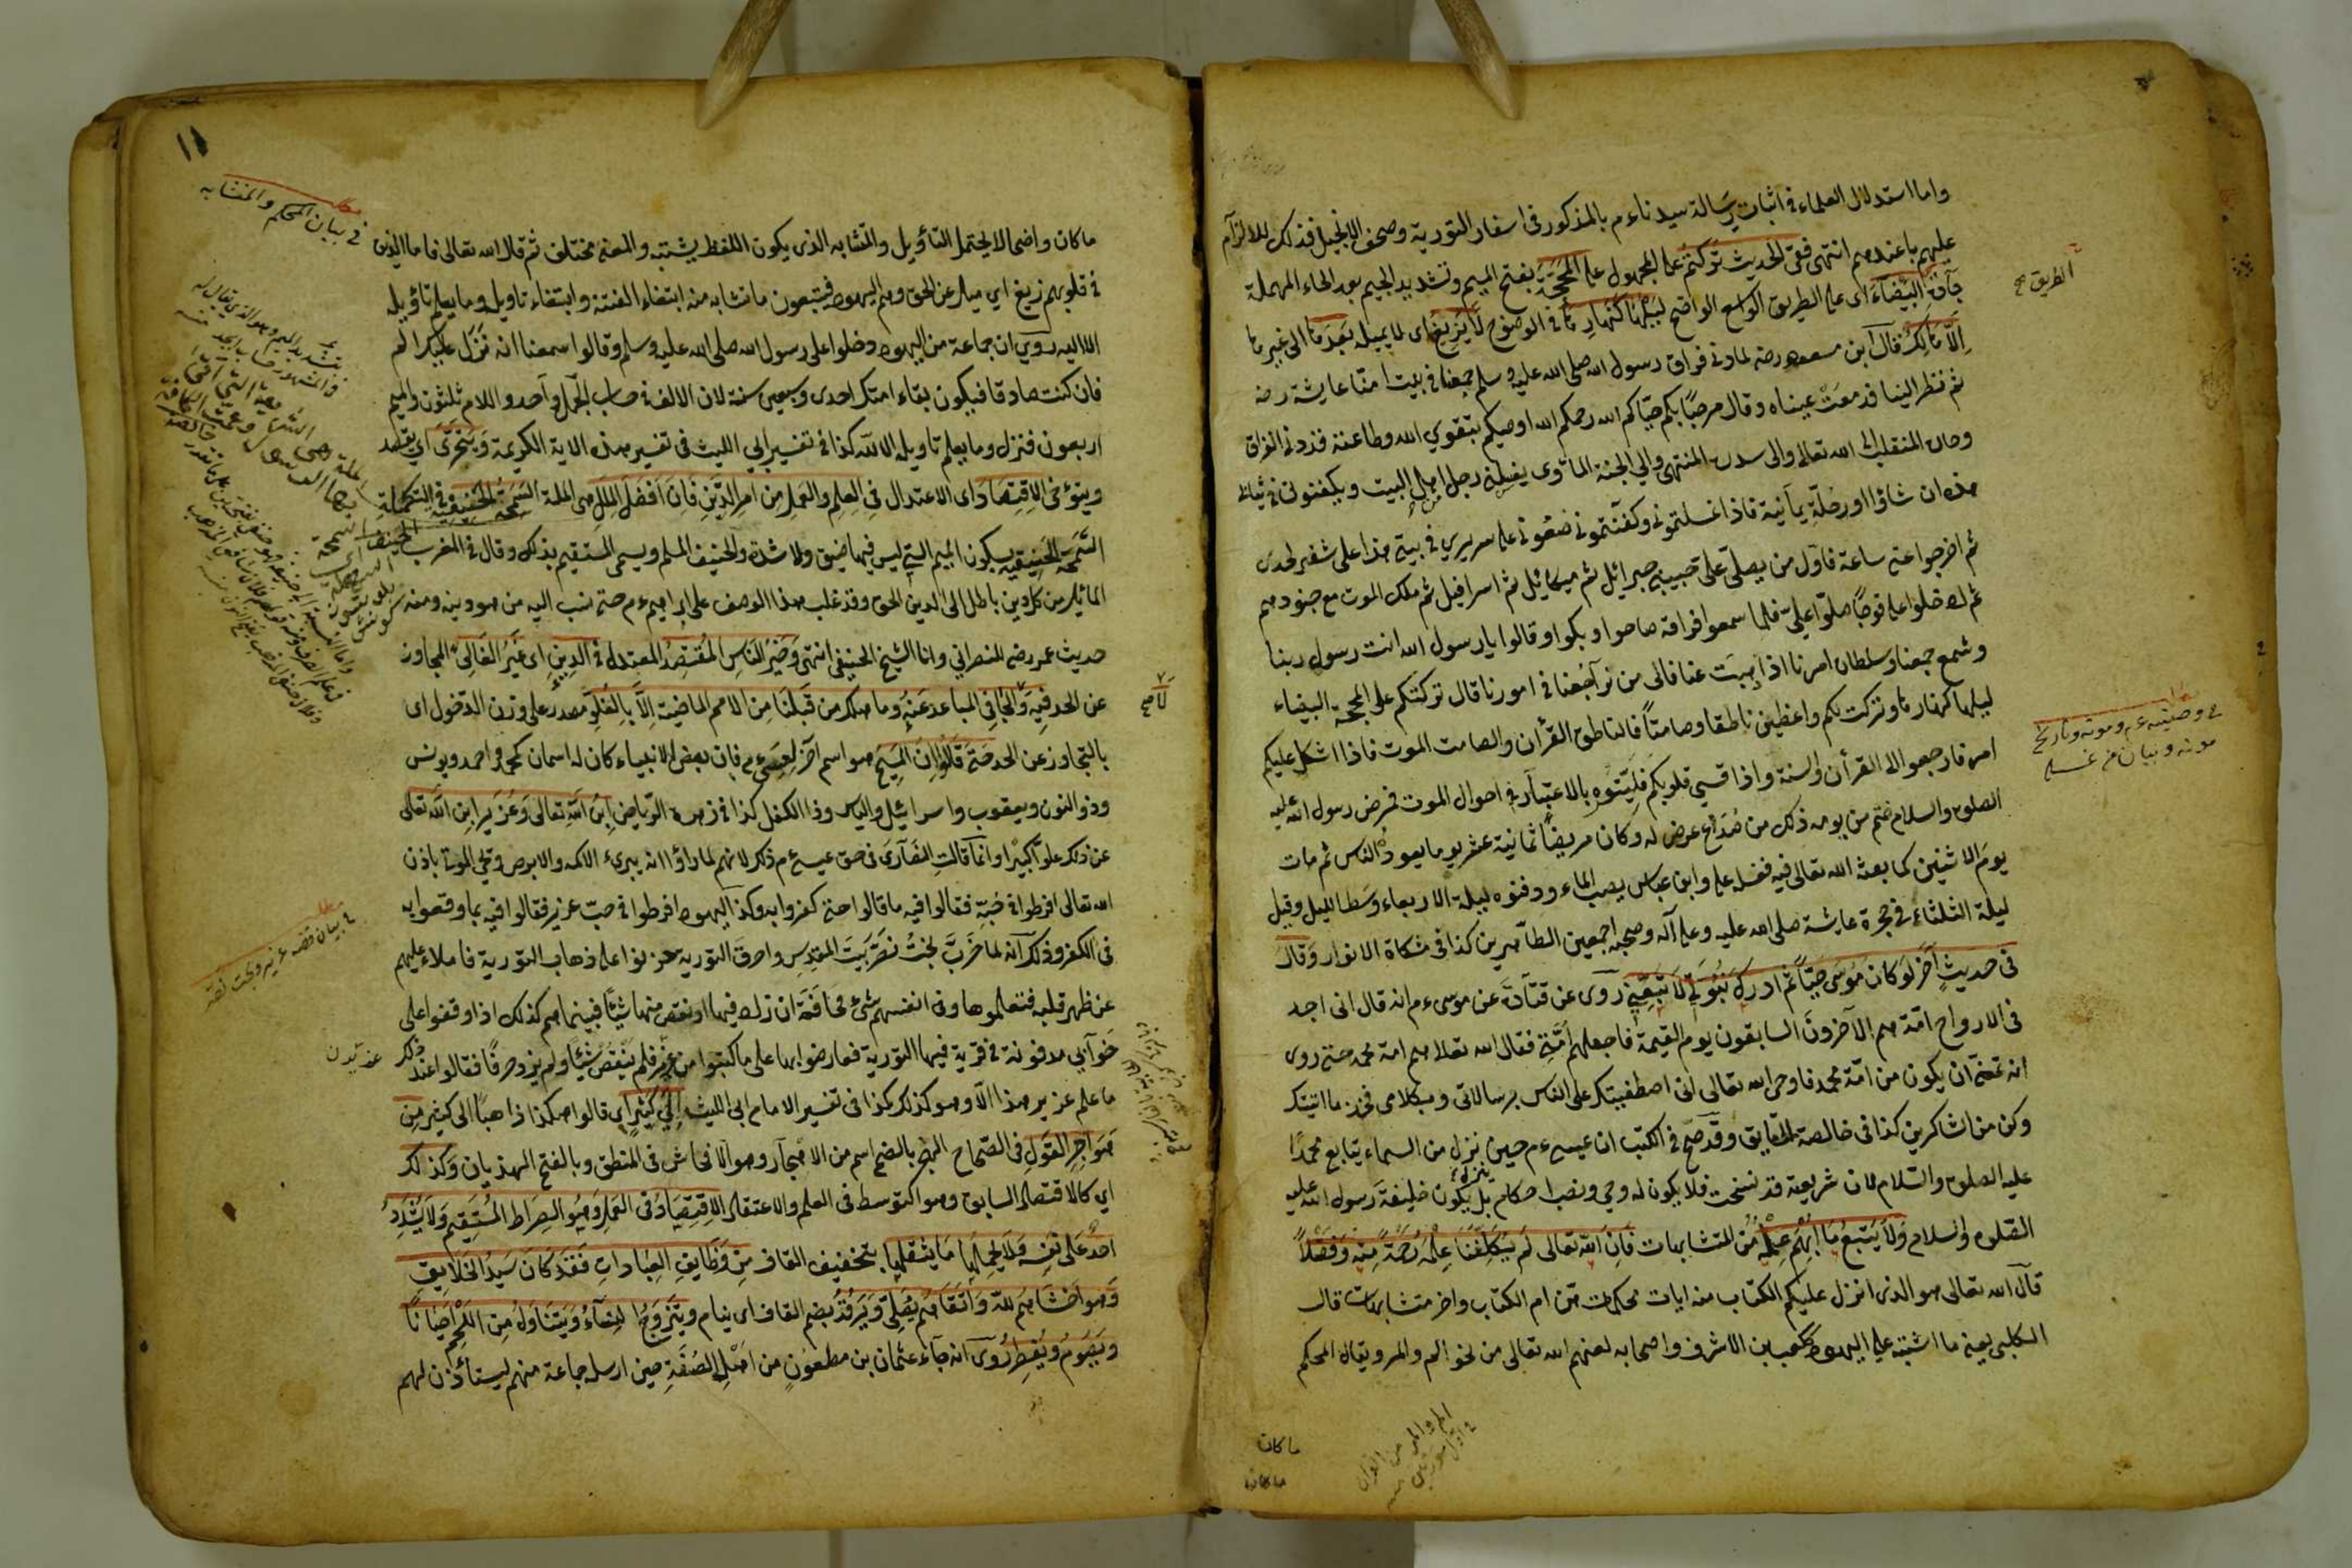 واما استدلال العلماء فى اثبات رسالة سيدنا ءم بالمذكور فى اسفار التورية وصحف الانجيل فذلك للالزام
عليهم بما عندهم انتهى ففى الحديث تركتم على المجهول على المحجة بفتح الميم وتشديد الجيم بعد الحاء المهملة
جادة البيضاء اى على الطريق الواسع الواضح ليلها كنهارها فى الوضوح لا يزيغ اى لا يميل بعدها الى غيرها
الا هالك قال ابن مسعود رضه لما دنى فراق رسول الله صلى الله عليه وسلم جمعنا فى بيت امنا عايشة رضه
ثم نظر الينا فدمعت عيناه وقال مرحبا بكم حياكم الله رحمكم الله اوصيكم بتقوي الله وطاعته قد دنى الفراق
وحان المنقلب الى الله تعالى والى سدرة المنتهى والى الجنة المأوى يغسلنى رجل اهل البيت ويكفنونى فى ثيابى
هذه ان شاؤا او حلة يمانية فاذا غسلتمونى وكفنتمونى ضعونى على سريري فى بيتى هذا على شفير لحدى
ثم اخرجوا عنى ساعة فاول من يصلى على حبيبى جبرائيل ثم ميكائيل ثم اسرافيل ثم ملك الموت مع جنودهم
ثم ادخلوا على فوجا صلوا على فلما سمعوا فراقه صاحوا وبكوا وقالوا يا رسول الله انت رسول ربنا
وشمع جمعنا وسلطان امرنا اذا ذهبت عنا فالى من نراجعنا فى امورنا قال تركتكم على المحجة البيضاء
ليلها كنهارها وتركت لكم واعظين ناطقا وصامتا فالناطق القرأن والصامت الموت فاذا اشكل عليكم
امر فارجعوا الى القرأن والسنة واذا قسى قلوبكم فلينوه بالاعتبار فى احوال الموت فمرض رسول الله عليه
الصلوة والسلام ختم من يومه ذلك من صداع عرض له وكان مريضا ثمانية عشر يوما يعوده الناس ثم مات
يوم الاثنين كما بعث الله تعالى فيه فغسله على وابن عباس يصب الماء ودفنوه ليلة الاربعاء وسط الليل وقيل
ليلة الثلثاء فى حجرة عائشة صلى الله عليه وعلى آله وصحبه اجمعين الطاهرين كذا فى مشكاة الانوار وقال
فى حديث آخر لو كان موسى حيا ثم ادرك نبوتى لاتبعنى روى عن قتادة عن موسى ءم انه قال انى اجد
فى الارواح امة هم الآخرون السابقون يوم القيمة فاجعلهم امتى فقال الله تعالى هم امة محمد حتى روى
انه تمنى ان يكون من امة محمد فاوحى الله تعالى انى اصطفيتك على الناس برسالاتى وبكلامى فخذ ما اتيتك
وكن من الشاكرين كذا فى خالصة الحقايق وقد صح فى الكتب ان عيسى ءم حين نزل من السماء يتابع محمدا
عليه الصلوة والسلام لان شريعته قد نسخت فلا يكون له وحي ونصب احكام بل يكون خليفة رسول الله عليه
الصلوة والسلام ولا يتبع ما ابهم علمه من المتشابهات فان الله تعالى لم يكلفنا علمه رحمة منه وفضلا
قال الله تعالى هو الذى انزل عليكم الكتاب منه ايات محكمات هن ام الكتاب واخر متشابهات قال
الكلبى يعنى ما اشتبه على اليهود ككعب بن الاشرف واصحابه لعنهم الله تعالى من نحو الم والمر ويقال المحكم
الطريق صح
فى وصيته ءم وموته وتاريخ
موته وبيان من غسله
الم والمر من القرآن
ما كان
ما كان
١١
ما كان واضحا لا يحتمل التأويل والمتشابه الذى يكون اللفظ يشتبه والمعنى مختلف ثم قال الله تعالى فاما الذين
فى قلوبهم زيغ اي ميل عن الحق وهم اليهود فيتبعون ما تشابه منه ابتغاء الفتنة وابتغاء تاويله وما يعلم تأويله
الا الله روي ان جماعة من اليهود دخلوا على رسول الله صلى الله عليه وسلم وقالوا سمعنا انه نزل عليك الم
فان كنت صادقا فيكون بقاء امتك احدى وسبعين سنة لان الالف فى حساب الجمل واحد واللام ثلثون والميم
اربعون فنزل وما يعلم تاويله الا الله كذا فى تفسير ابي الليث فى تفسير هذه الاية الكريمة ويتحرى اي يقصد
وينوى الاقتصاد اى الاعتدال فى العلم والعمل من امر الدين فان افضل الملل هى الملة السمحة الحنيفية وفى التكملة
السمحة الحنيفية بسكون الميم التى ليس فيها ضيق ولا شدة والحنيف المسلم ويسمى المستقيم بذلك وقال فى المغرب الحنيف
المائل من كل دين باطل الى الدين الحق وقد غلب هذا الوصف على ابراهيم ءم حتى نسب اليه من هو دينه ومنه
حديث عمر رضه للنصرانى وانا الشيخ الحنيفى انتهى وخير الناس المقتصد المعتدل فى الدين اى غير الغالى المجاوز
عن الحد فيه والجافى المباعد عنه وما هلك من قبلنا من الامم الماضية الا بالغلو مصدر على وزن الدخول اى
بالتجاوز عن الحد حتى قالوا ان المسيح هو اسم آخر لعيسى ءم فان بعض الانبياء كان له اسمان كمحمد واحمد ويونس
وذو النون ويعقوب واسرائيل والياس وذا الكفل كذا فى زهرة الرياض ابن الله تعالى وعزير ابن الله تعالى
عن ذلك علوا كبيرا وانما قالت النصارى فى حق عيسى ءم ذكر لانهم لما راوا انه يبرىء الاكمه والابرص ويحى الموتى باذن
الله تعالى افرطوا فى حبه فقالوا فيه ما قالوا حتى كفروا به وكذا اليهود افرطوا فى حب عزير فقالوا فيه بما وقعوا به
فى الكفر وذلك انه لما خرب بخت نصر بيت المقدس واحرق التورية حزنوا على ذهاب التورية فاملاء عليهم
عن ظهر قلبه فتعلموها وفى انفسهم شئ مخافة ان زاد فيها او نقص منها شيئا فبينماهم كذلك اذا وقفوا على
خوابى مدفونة فى قرية فيها التورية فعارضوا بها على ما كتبوا من عزير فلم ينقص شيئا ولم يزد حرفا فقالوا عند ذلك
ما علم عزير هذا الا وهو كذلك كذا فى تفسير الامام ابى الليث الى كثير اى قالوا هكذا ذاهبا الى كثير من
هواجر القول فى الصحاح الهجر بالضم اسم من الاهجار وهو الافحاش فى المنطق وبالفتح الهذيان وكذلك
اي كالاقتصاد السابق وهو التوسط فى العلم والاعتقاد الاقتصاد فى العمل وهو الصراط المستقيم ولا يشدد
احد على نفسه فلا يحملها ما يثقلها بتخفيف القاف من وظايف العبادات فقد كان سيد الخلايق
وهو اخشاهم لله واتقاهم يصلى ويرقد بضم القاف اى ينام ويتزوج النساء ويتناول من اللحم احيانا
ويصوم ويفطر روى انه جاء عثمان بن مطعون من اهل الصفة حين ارسله جماعة منهم ليستأذن لهم
فى بيان المحكم والمتشابه
فى بيان قصه عزير وبخت نصر